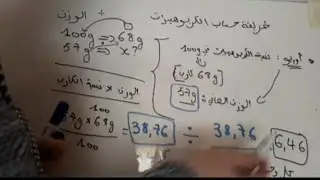 طريقة حساب الكربوهيدرات
الوزن
100g ⇒ 68g
57g ⇒ x?
نسبة الكربوهيدرات في 100g
68g كارب
الوزن الحالي: 57g
الوزن × نسبة الكارب
100
57g × 68g / 100 = 38,76 ÷ 38,76
6,46